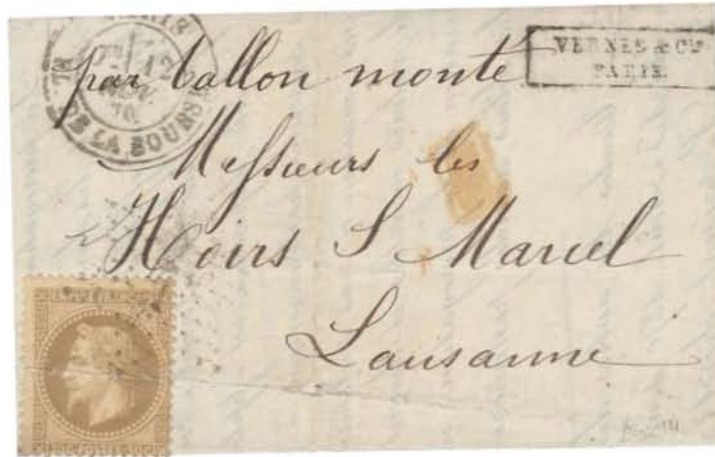 PARIS
PL. DE LA BOURSE
VERNES & Cie
PARIS.
par ballon monté
Messieurs les
Hoirs S Marcel
Lausanne